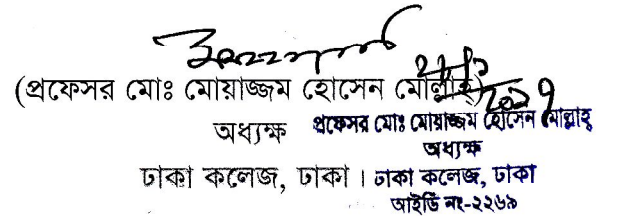 (প্রফেসর মোঃ মোয়াজ্জম হোসেন মোল্লাহ্)
অধ্যক্ষ
ঢাকা কলেজ, ঢাকা।
প্রফেসর মোঃ মোয়াজ্জম হোসেন মোল্লাহ্
অধ্যক্ষ
ঢাকা কলেজ, ঢাকা
আইডি নং-২২৬৯